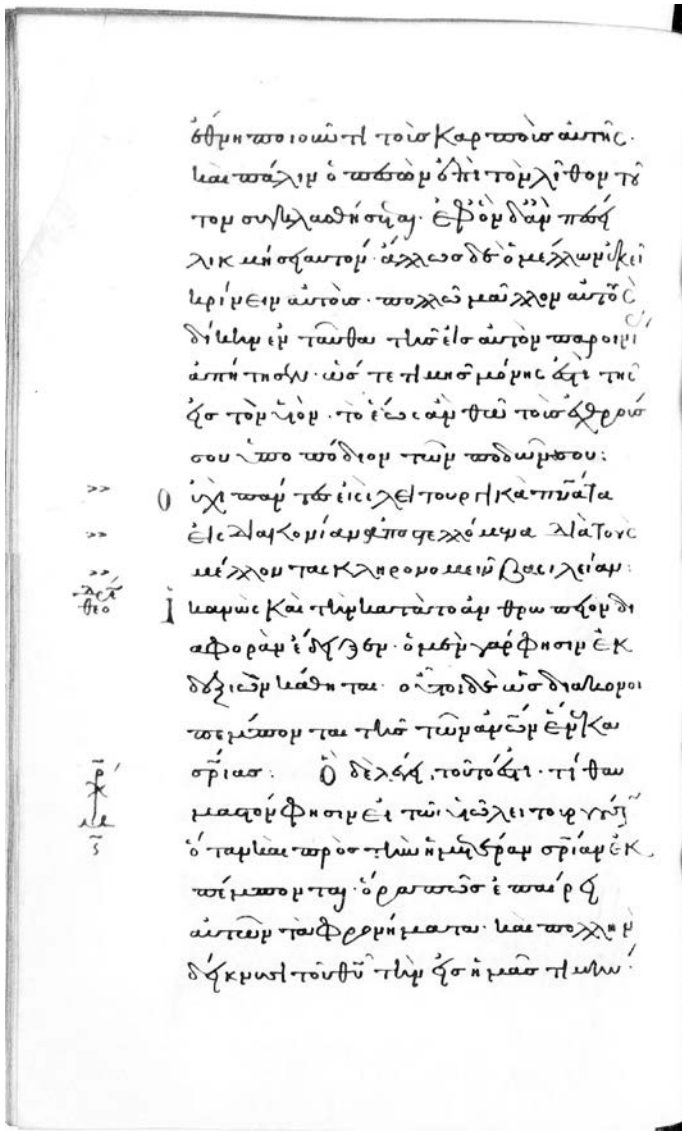 ἔθνη ποιοῦντι τοὺς καρποὺς αὐτῆς·
καὶ πάλιν ὁ πεσὼν ἐπὶ τὸν λίθον τοῦ
τον συνθλασθήσεται· ἐφ' ὃν δ' ἂν πέσῃ
λικμήσει αὐτόν· ἄλλως δὲ ὁ μέλλων ἐκεῖ
κρίνειν αὐτοὺς· πολλῶ μᾶλλον αὐτοὺς
δίκην ἐνταῦθα τῆς εἰς αὐτὸν παροινί
ας ἀπήτησεν· ὥστε τιμῆς μόνης ἐστὶ τῆς
εἰς τὸν υἱὸν· τὸ ἕως ἂν θῶ τοὺς ἐχθρούς
σου ὑποπόδιον τῶν ποδῶν σου:
Οὐχὶ πάντες εἰσὶ λειτουργικὰ πν̅ατα
εἰς διακονίαν ἀποστελλόμενα διὰ τοὺς
μέλλοντας κληρονομεῖν βασιλείαν:
Ἱκανῶς καὶ τὴν κατὰ τὸ ἀνθρώπειον δι
αφορὰν ἔδειξεν· ὁ μὲν γάρ φησιν ἐκ
δεξιῶν κάθηται· οὗτοι δὲ ὡς διάκονοι
πέμπονται τῆς τῶν ἀν̅ων ἕνεκα
σρ̅ίας: Ὃ δὲ λέγει, τοῦτό ἐστι· τί θαυ
μαστόν φησιν εἰ τῶ υἱῶ λειτουργοῦσι
ὅταν καὶ πρὸς τὴν ἡμετέραν σρ̅ίαν ἐκ
πέμπονται· ὅρα πῶς ἐπαίρει
αὐτῶν τὰ φρονήματα· καὶ πολλὴν
δείκνυσι τοῦ θυ̅ τὴν εἰς ἡμᾶς τιμήν·